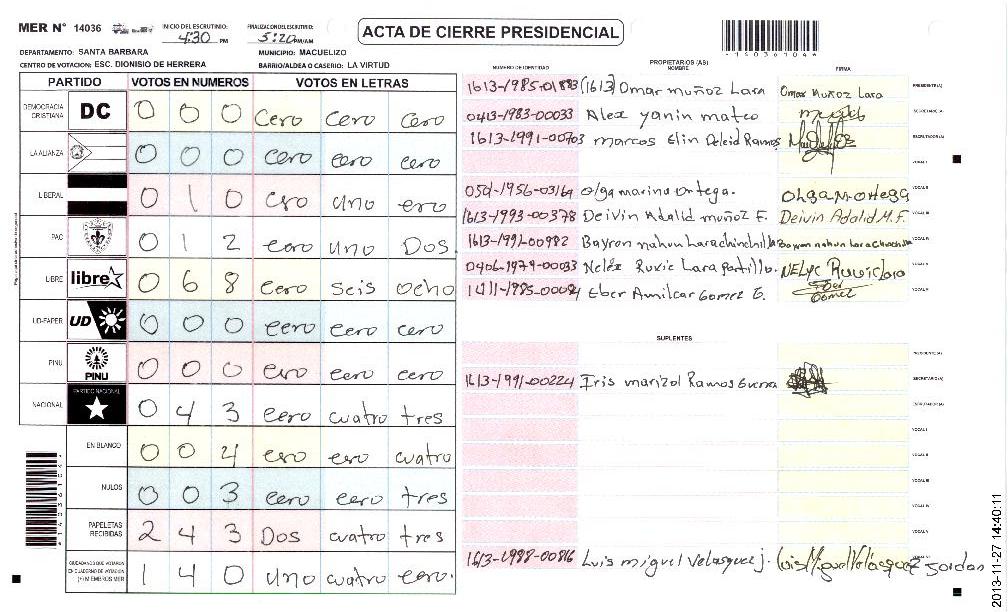 MER N° 14036
INICIO DEL ESCRUTINIO: 4:30 PM
FINALIZACION DEL ESCRUTINIO: 5:20 PM/AM
ACTA DE CIERRE PRESIDENCIAL
DEPARTAMENTO: SANTA BARBARA
MUNICIPIO: MACUELIZO
CENTRO DE VOTACION: ESC. DIONISIO DE HERRERA
BARRIO/ALDEA O CASERIO: LA VIRTUD
PARTIDO VOTOS EN NUMEROS VOTOS EN LETRAS
DEMOCRACIA CRISTIANA DC 0 0 0 Cero Cero Cero
LA ALIANZA 0 0 0 cero cero cero
LIBERAL 0 1 0 cro uno ero
PAC 0 1 2 cero uno Dos.
LIBRE libre 0 6 8 cero seis ocho
UD-FAPER UD 0 0 0 cero cero cero
PINU PINU 0 0 0 cero cero cero
NACIONAL PARTIDO NACIONAL 0 4 3 cero cuatro tres
EN BLANCO 0 0 4 ero ero cuatro
NULOS 0 0 3 cero cero tres
PAPELETAS RECIBIDAS 2 4 3 Dos cuatro tres
CIUDADANOS QUE VOTARON EN CUADERNO DE VOTACION (+) MIEMBROS MER 1 4 0 uno cuatro cero.
PROPIETARIOS (AS)
NUMERO DE IDENTIDAD NOMBRE FIRMA
1613-1985-01883 (1613) Omar muñoz Lara Omar muñoz Lara PRESIDENTE(A)
0413-1983-00033 Alex yanin mateo SECRETARIO(A)
1613-1991-00703 marcos Elin Delcid Ramos ESCRUTADOR(A)
VOCAL I
0501-1956-03164 Olga marina Ortega. Olga M. Ortega VOCAL II
1613-1993-00378 Deivin Adalid muñoz F. Deivin Adalid M. F. VOCAL III
1613-1991-00982 Bayron nahun Larachinchilla Bayron nahun Larachinchilla VOCAL IV
0406-1979-00033 Nelex Ruvic Lara Portillo. VOCAL V
1411-1985-00084 Eber Amilcar Gomez E. Eber Gomez
SUPLENTES
PRESIDENTE(A)
1613-1991-00224 Iris marizol Ramos Guerra SECRETARIO(A)
ESCRUTADOR(A)
VOCAL I
VOCAL II
VOCAL III
VOCAL IV
VOCAL V
1613-1988-00816 Luis miguel Velasquez j. Luis Miguel Velasquez Jordan
2013-11-27 14:40:11